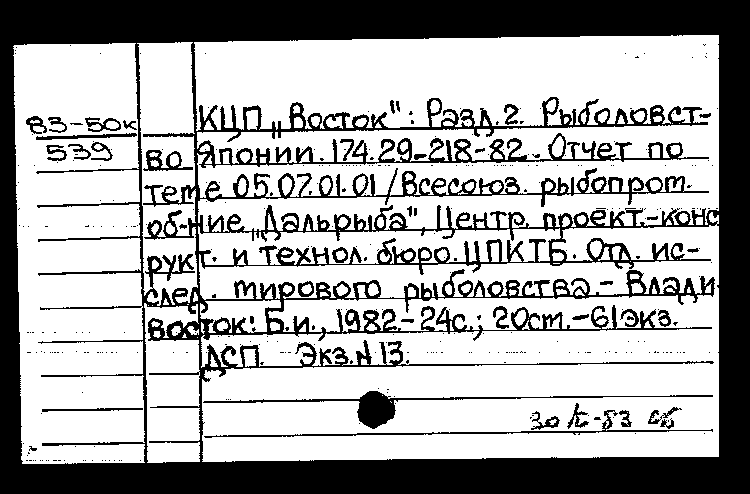 83-50к
539
КЦП „Восток": Разд. 2. Рыболовст-
во Японии. 174.29-218-82. Отчет по
теме 05.07.01.01/Всесоюз. рыбопром.
об-ние „Дальрыба", Центр. проект.-конс
трукт. и технол. бюро. ЦПКТБ. Отд. ис-
след. мирового рыболовства. - Влади
восток: Б.и., 1982. - 24с.; 20см. - 61экз.
ДСП. Экз. N 13.